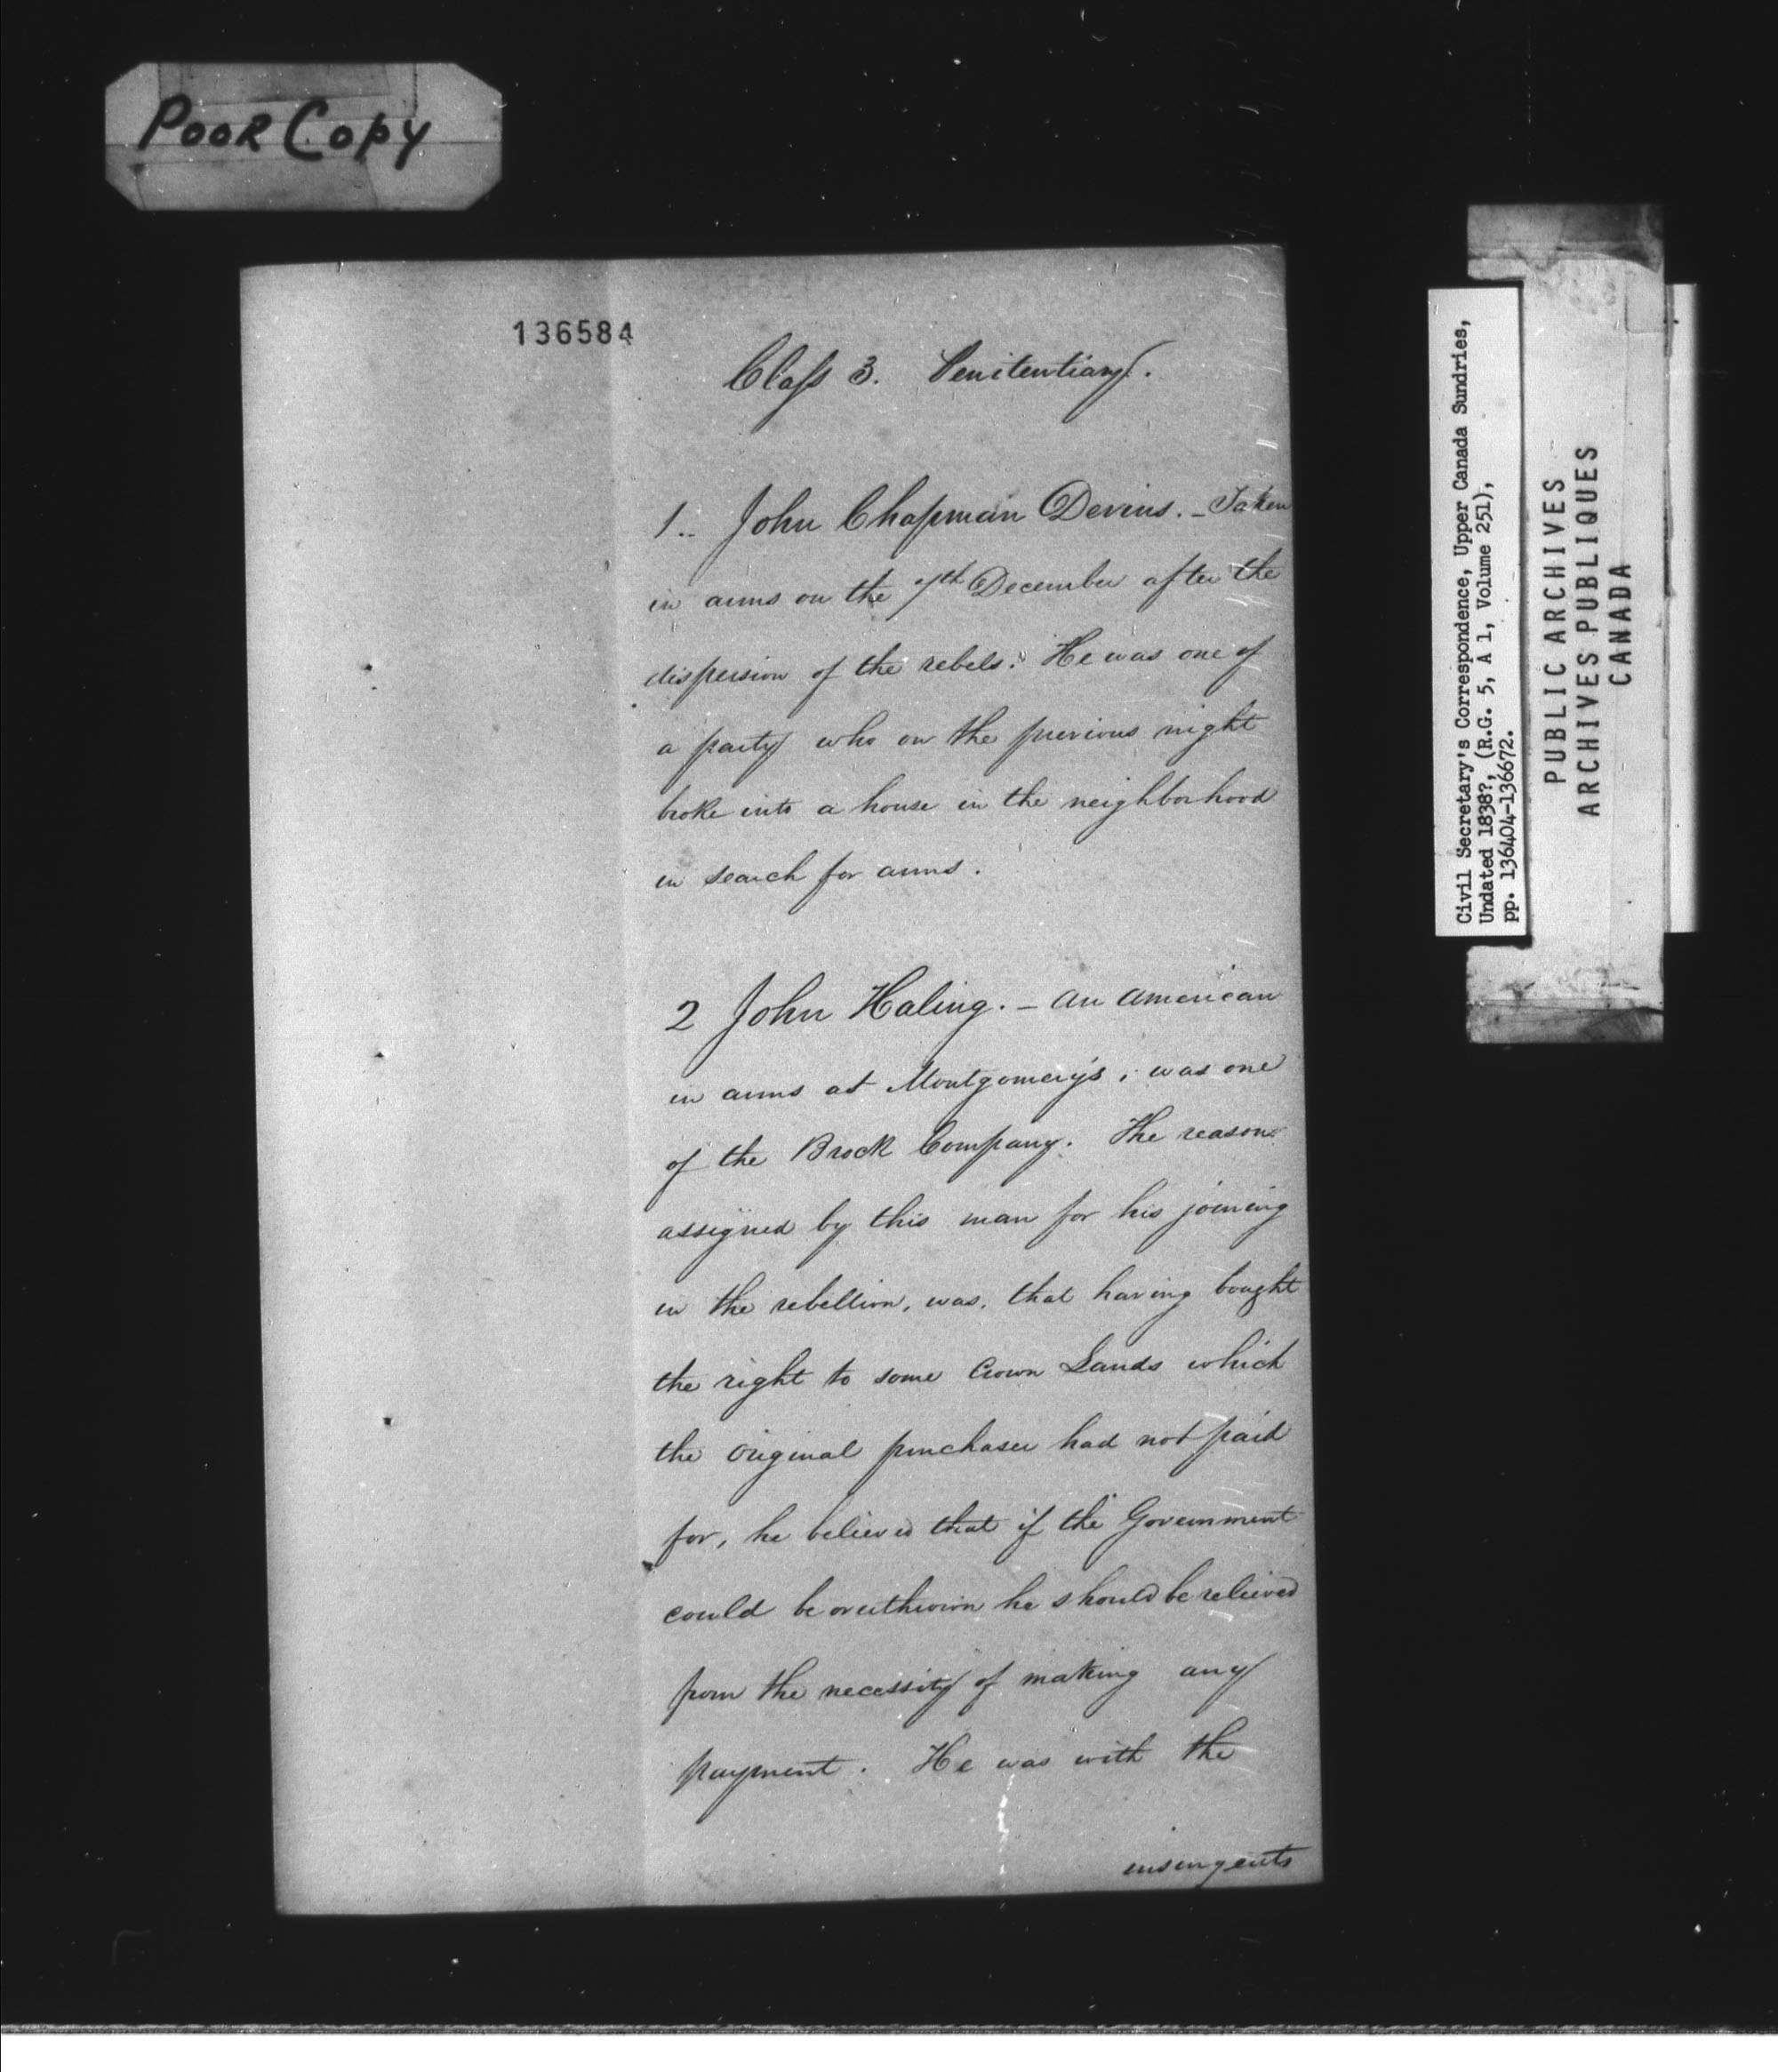 POOR COPY
136584
Class 3. Penitentiary.
1.. John Chapman Devins. - Taken
in arms on the 7th December after the
dispersion of the rebels. He was one of
a party who on the previous night
broke into a house in the neighborhood
in search for arms.
2 John Haling. - an American
in arms at Montgomery's; was one
of the Brock Company. The reason
assigned by this man for his joining
in the rebellion, was, that having bought
the right to some Crown Lands which
the original purchaser had not paid
for, he believed that if the Government
could be overthrown he should be relieved
from the necessity of making any
payment. He was with the
insurgents
Civil Secretary's Correspondence, Upper Canada Sundries,
Undated 1838?, (R.G. 5, A 1, Volume 251),
pp. 136404-136672.
PUBLIC ARCHIVES
ARCHIVES PUBLIQUES
CANADA